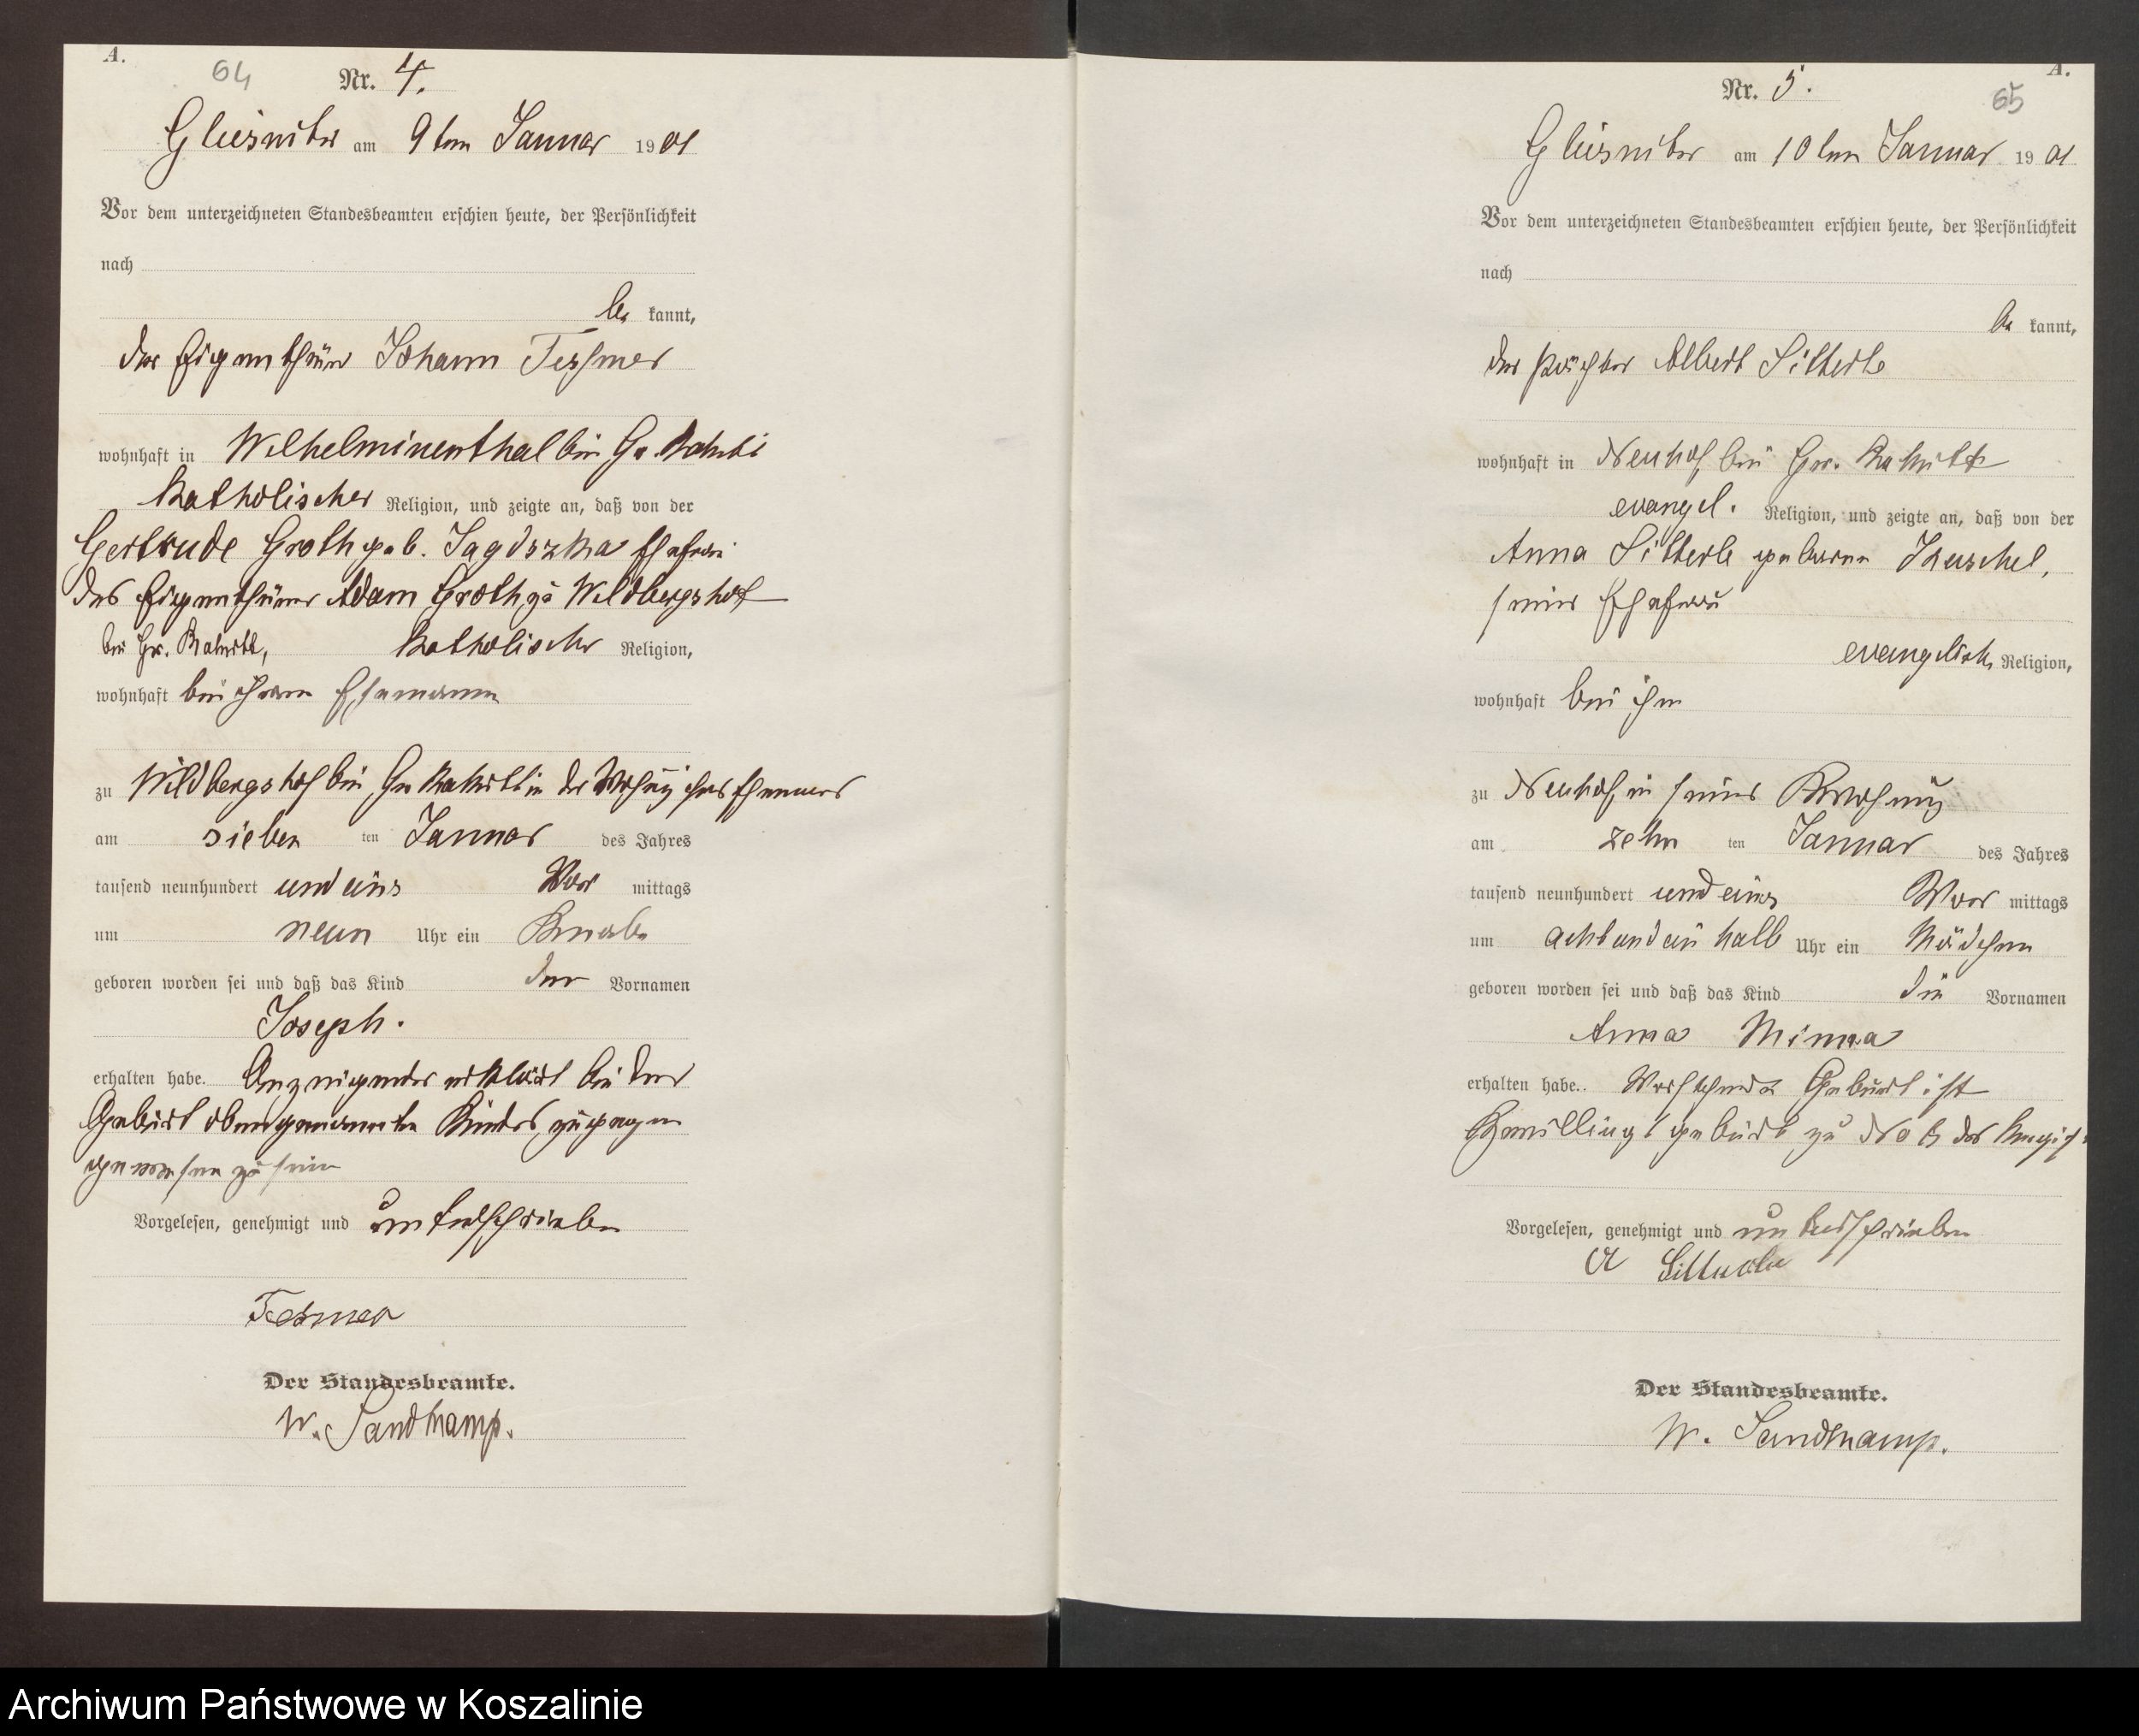 A.
64
Nr. 4.
Gliesnitz am 9ten Januar 1901
Vor dem unterzeichneten Standesbeamten erschien heute, der Persönlichkeit
nach
be kannt,
der Eigenthümer Johann Tessmer
wohnhaft in Wilhelminenthal bei Gr.
Katholischer Religion, und zeigte an, daß von der
Gertrude Groth geb. Jagoszka Ehefrau
des Eigenthümer Adam Groth zu Wildbergshof
bei Gr. Katholischer Religion,
wohnhaft bei ihrem Ehemann
zu Wildbergshof bei Gr. in der Wohnung ihres Ehemannes
am sieben ten Januar des Jahres
tausend neunhundert und eins Vor mittags
um neun Uhr ein Knabe
geboren worden sei und daß das Kind den Vornamen
Joseph.
erhalten habe. Anzeigender erklärt bei der
Geburt obengenannten Kindes, zugegen
gewesen zu sein
Vorgelesen, genehmigt und unterschrieben
Tessmer
Der Standesbeamte.
W. Sandkamp.
A.
65
Nr. 5.
Gliesnitz am 10ten Januar 1901
Vor dem unterzeichneten Standesbeamten erschien heute, der Persönlichkeit
nach
be kannt,
der Pächter Albert Sitterle
wohnhaft in Neuhof bei Gr.
evangel. Religion, und zeigte an, daß von der
Anna Sitterle geborene Kuschel,
seiner Ehefrau
evangelisch Religion,
wohnhaft bei ihm
zu Neuhof, in seiner Wohnung
am zehn ten Januar des Jahres
tausend neunhundert und eins Vor mittags
um acht und ein halb Uhr ein Mädchen
geboren worden sei und daß das Kind die Vornamen
Anna Minna
erhalten habe. Vorstehende Geburt ist
Zwillingsgeburt zu No 6 des
Vorgelesen, genehmigt und unterschrieben
A Sitterle
Der Standesbeamte.
W. Sandkamp.
Archiwum Państwowe w Koszalinie